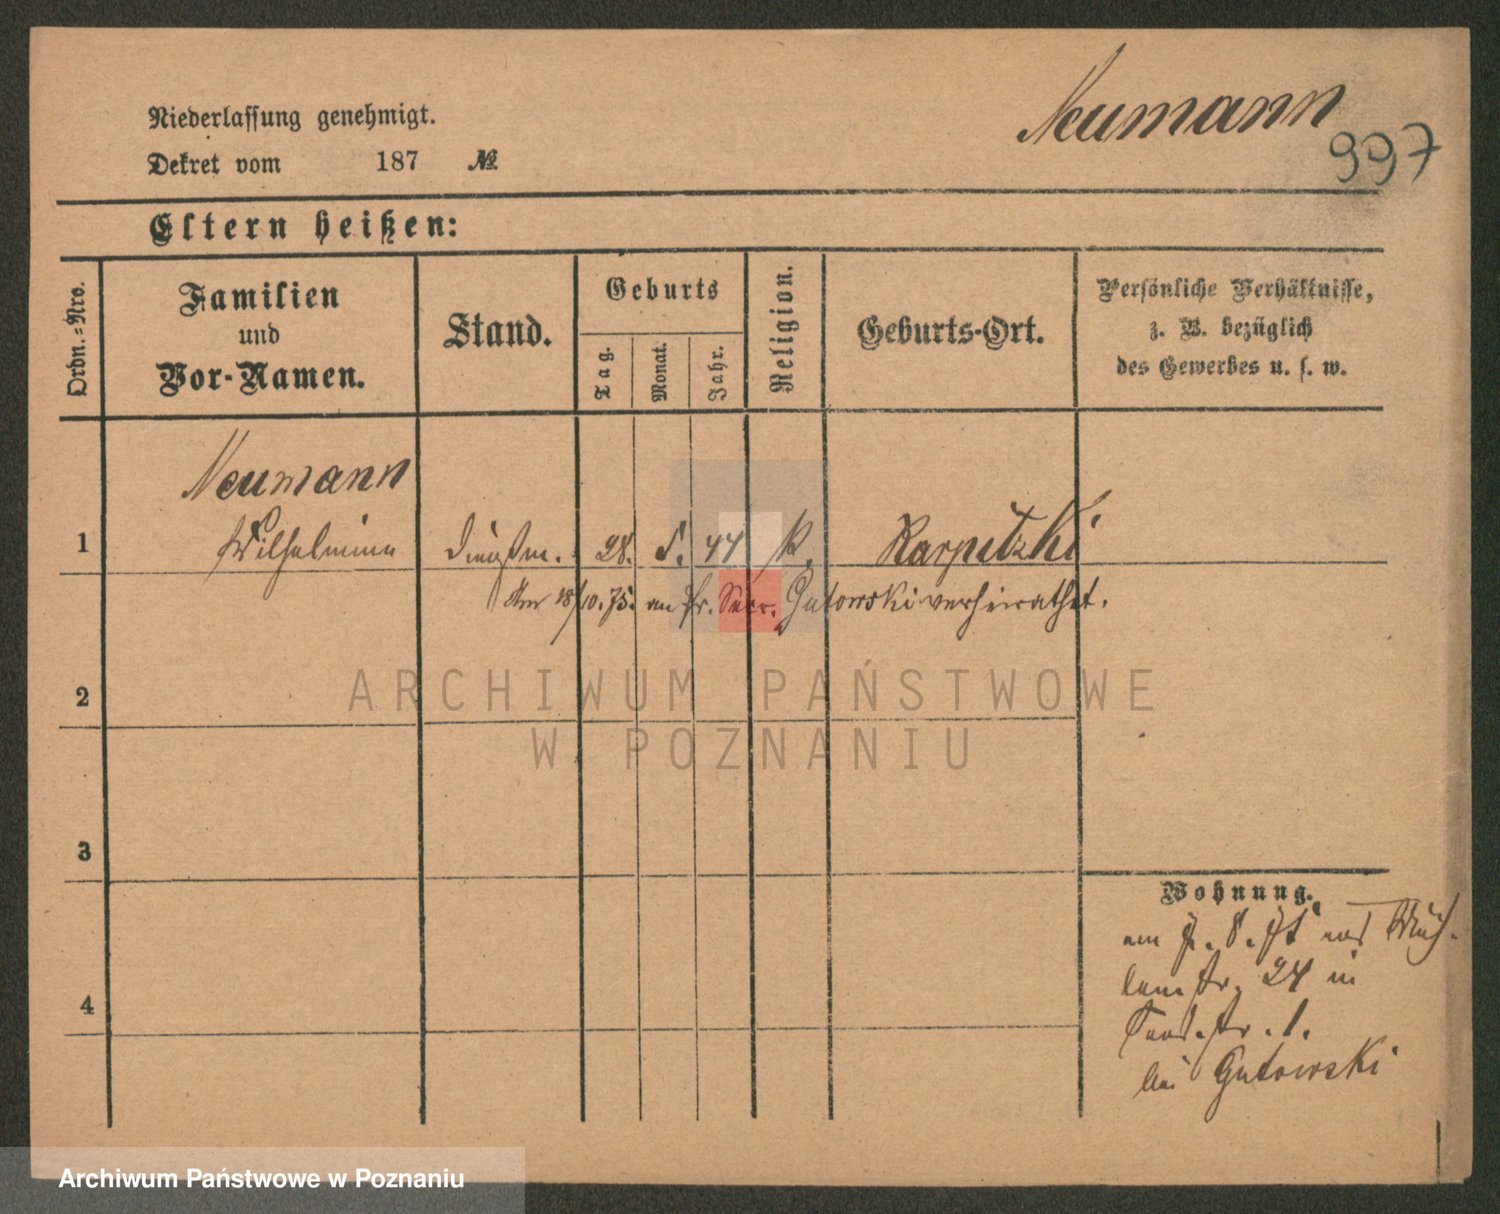 Neumann
997
Niederlassung genehmigt.
Dekret vom 187 №
Eltern heißen:
Ordn.=Nro.
Familien und Vor-Namen.
Stand.
Geburts
Tag.
Monat.
Jahr.
Religion.
Geburts-Ort.
Persönliche Verhältnisse,
z. B. bezüglich
des Gewerbes u. s. w.
Neumann
1 Wilhelmine Dienstm. 28. 5. 44 k.
Am 18/10.75. an Secr. Gutowski verheirathet.
2
3
4
Wohnung.
24 in
1.
bei Gutowski
ARCHIWUM PAŃSTWOWE
W POZNANIU
Archiwum Państwowe w Poznaniu